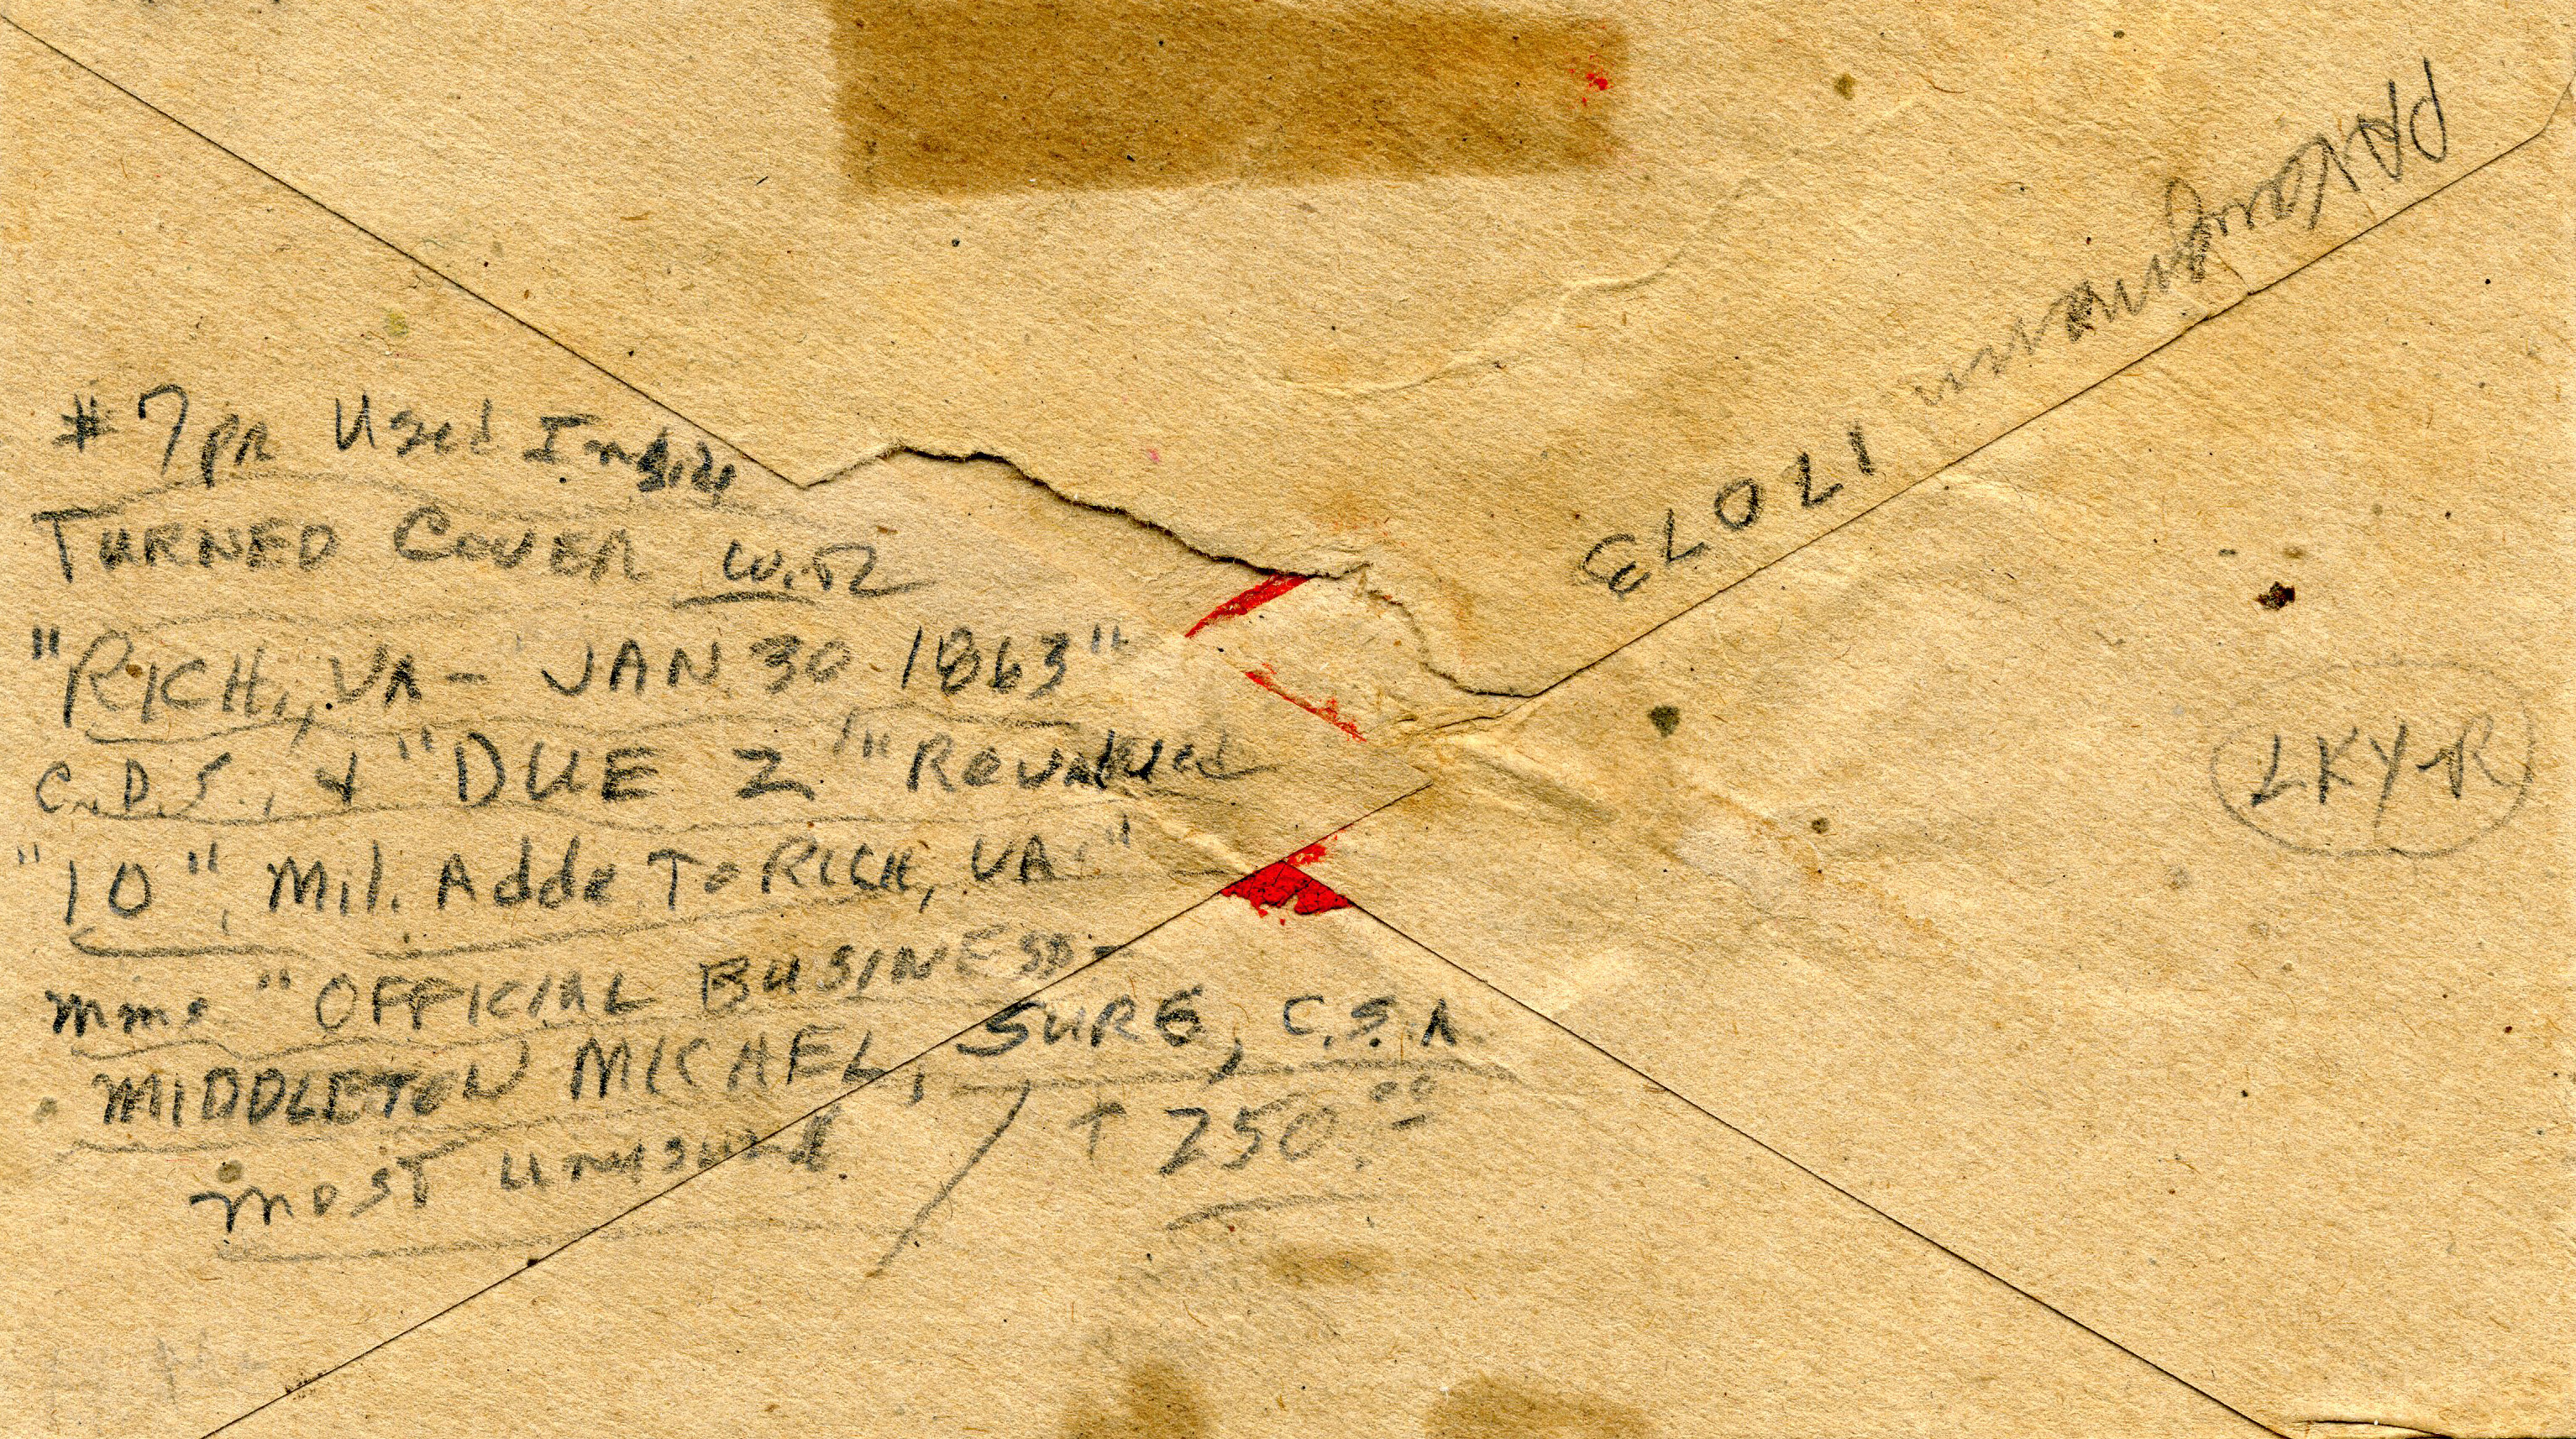 #7 pr Used Inside
TURNED COVER with
"RICH., VA - JAN 30 1863"
C.D.S., & "DUE 2" "Revalued
"10", Mil. Addr. To RICH, VA."
mms. "OFFICIAL BUSINESS -
MIDDLETON MICHEL, SURG, C.S.A.
most unusual / + 250.00
17073
LKY-R